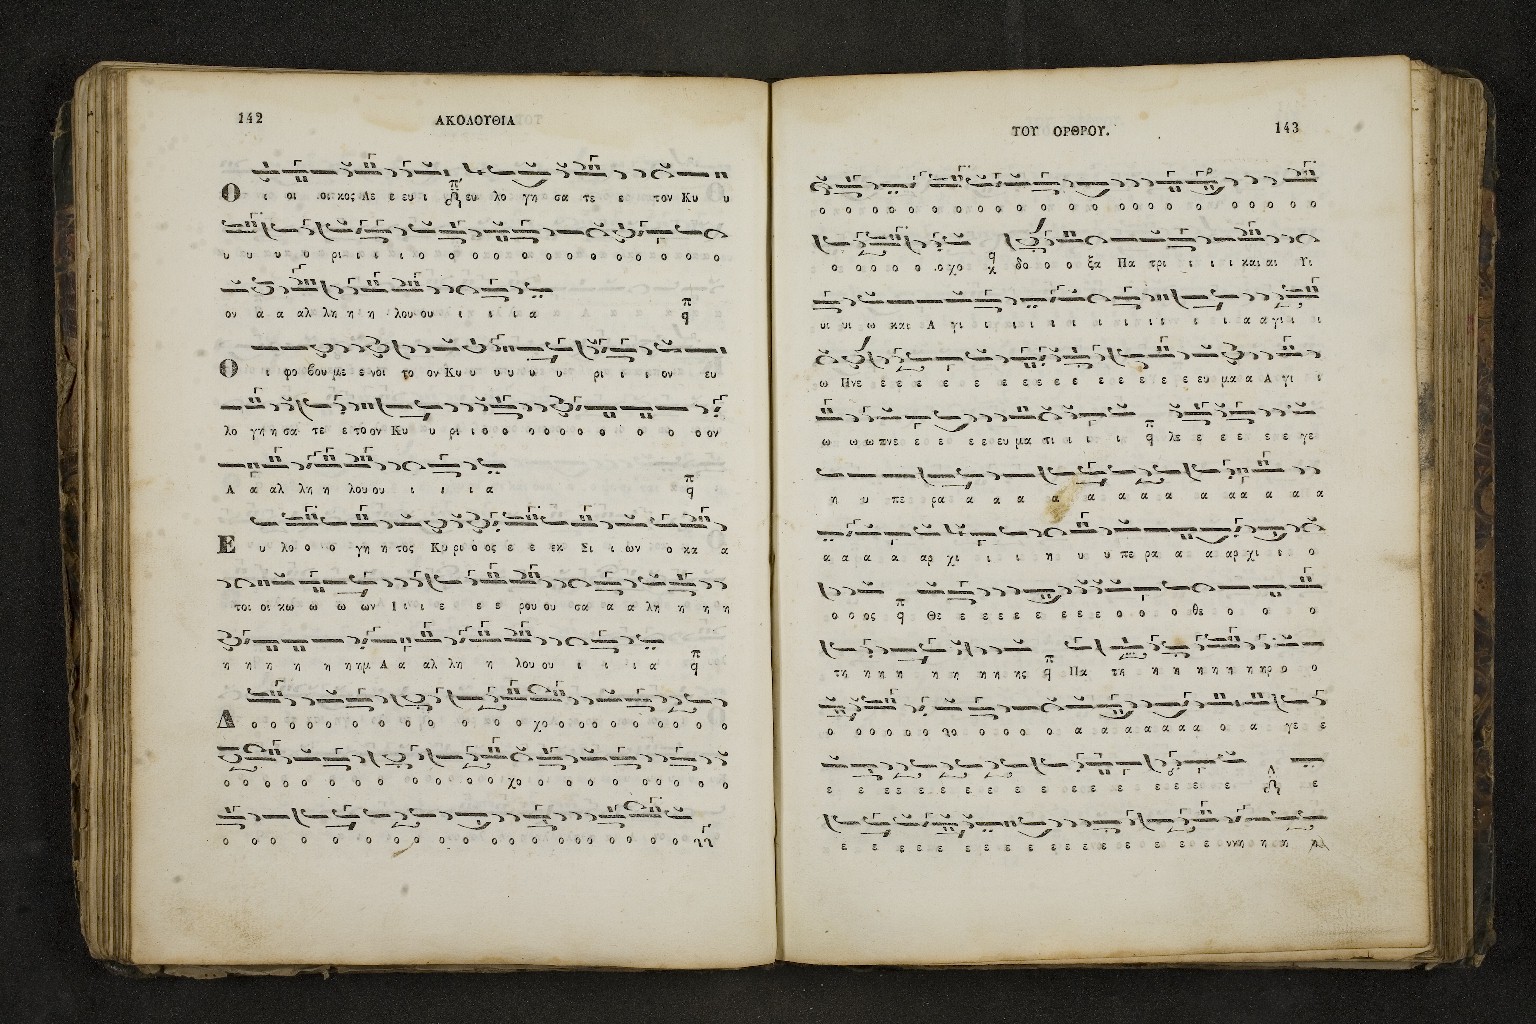 142 ΑΚΟΛΟΥΘΙΑ
Ο ι οι οι κος Λε ε ευ ι ευ λο γη σα τε ε τον Κυ υ
υ υ υ ο ρι ι ι ι ο ο ο ο ο ο ο ο ο ο ο ο ο ο
ον α α αλ λη η η λου ου ι ι ι α
Ο ι φο βου με ε νοι το ον Κυ υ υ υ υ υ ρι ι ι ον ευ
λο γη η σα τε ε το ον Κυ υ ρι ι ο ο ο ο ο ο ο ο ο ο ον
Α α αλ λη η λου ου ι ι ι α
Ε υ λο ο ο γη η τος Κυ ρι ο ος ε ε εκ Σι ι ων ο κα α
τοι οι κω ω ω ων Ι ι ι ε ε ε ρου ου σα α α λη η η η
η η η η η η ημ Α α αλ λη η λου ου ι ι ι α
Δ ο ο ο ο ο ο ο ο ο ο χο ο ο ο ο ο ο ο ο ο
ο ο ο ο ο ο ο ο ο ο ο χο ο ο ο ο ο ο ο ο ο
ο ο ο ο ο ο ο ο ο ο ο ο ο ο ο ο ο ο ο ο
ΤΟΥ ΟΡΘΡΟΥ. 143
ο ο ο ο ο ο ο ο ο ο ο ο ο ο ο ο ο ο ο ο ο ο
ο ο ο ο ο ο χο δο ο ο ξα Πα τρι ι ι ι και αι Υι
υι υι ω και Α γι ι ι ι ι ι ι ι ι ι ι ι α α γι ι ι
ω Πνε ε ε ε ε ε ε ε ε ε ε ε ε ε ε ε ευ μα α Α γι ι
ω ω ω πνε ε ε ε ε ε ευ μα τι ι ι ι λε ε ε ε ε ε γε
η υ πε ρα α α α α α α α α α α α α α α
α α α α αρ χι ι ι η υ υ πε ρα α α αρ χι ι ο
ο ο ος Θε ε ε ε ε ε ε ε ε ο ο ο θε ο ο ο ο
τη η η η η η η ης Πα τη η η η η η η ηρ ο ο
ο ο ο ο ο ο ο ο ο α α α α α α α ο α γε ε
ε ε ε ε ε ε ε ε ε ε ε ε ε ε ε ε ε ε
ε ε ε ε ε ε ε ε ε ε ε ε ε ε ε ννη η η η